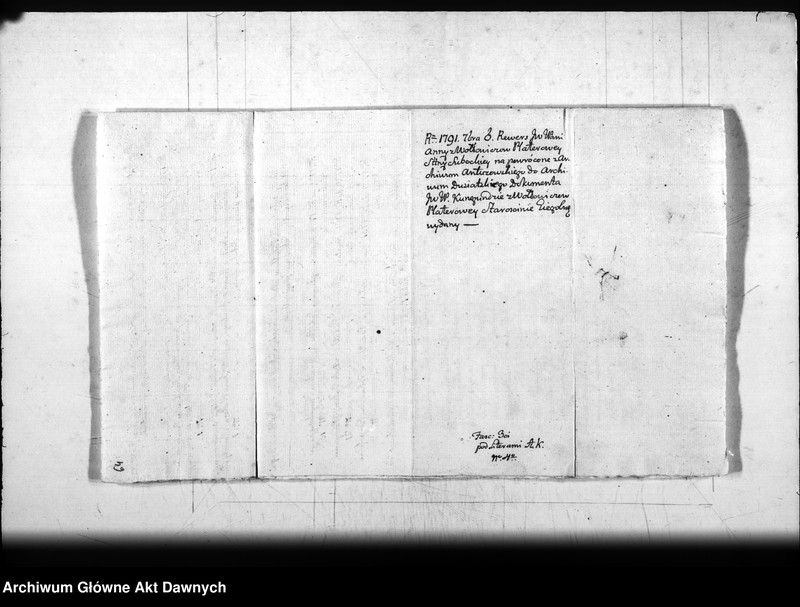 Rku 1791. 7bra 8. Rewers JW Pani
Anny z Wołłowiczow Platerowey
Sttny Subockiey na powrócone z Ar-
chiwum Antuzowskiego do Archi-
wum Dusiatskiego Dokumenta
JW W. Kunegundzie z Wołłowiczow
Platerowey Starościnie
wydany —
Fasc: 3ci
pod Literami A. K.
3
Archiwum Główne Akt Dawnych